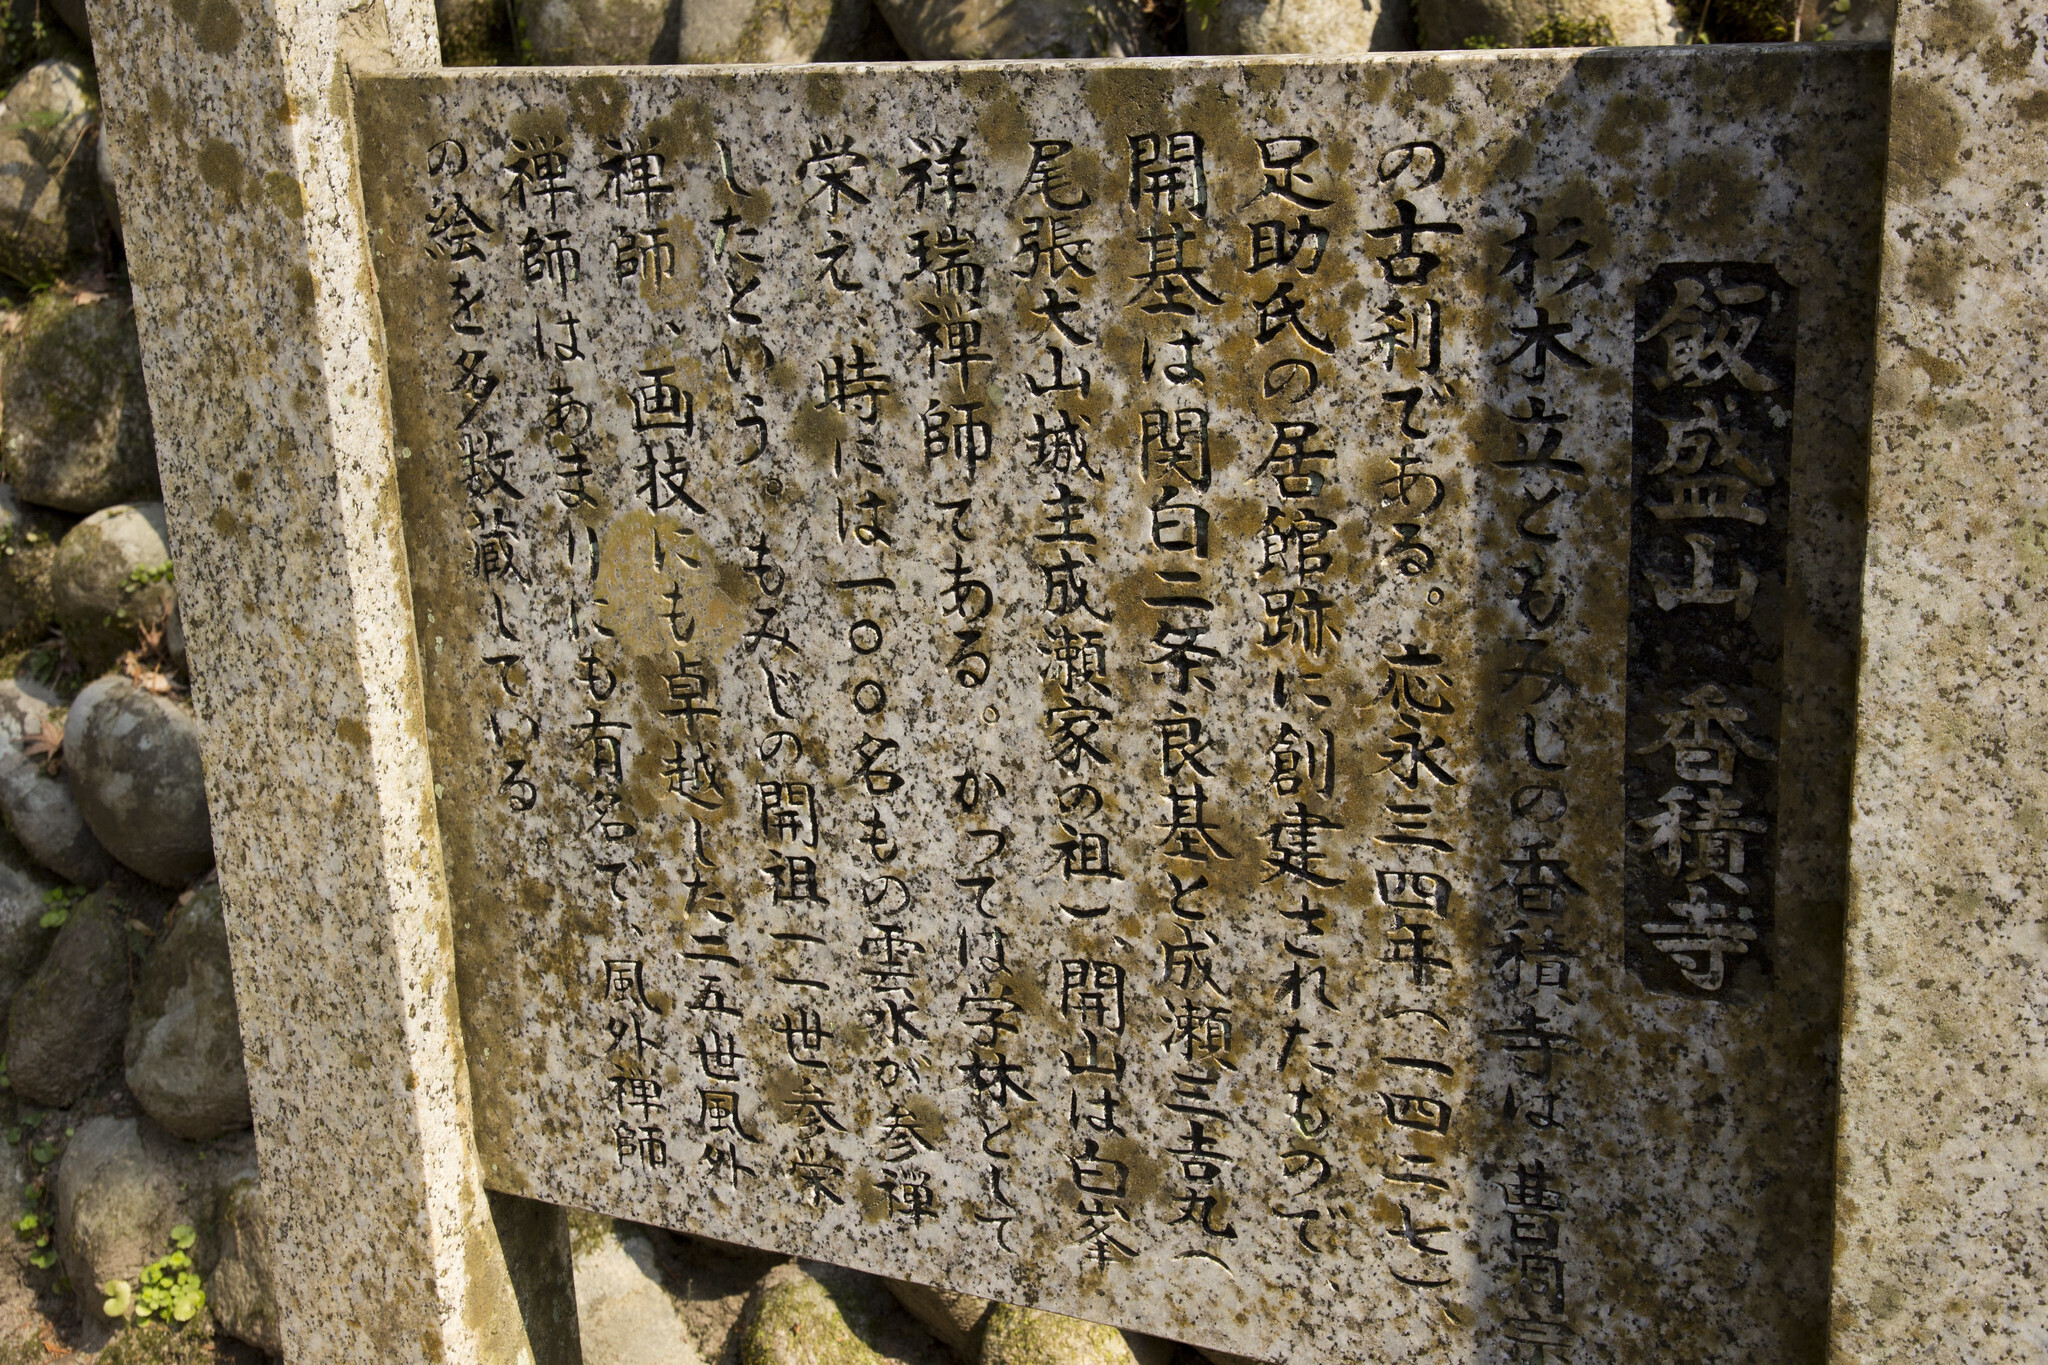 飯盛山 香積寺
杉木立ともみじの香積寺は曹洞宗
の古刹である。応永三四年(一四二七)、
足助氏の居館跡に創建されたもので、
開基は関白二条良基と成瀬三吉丸(
尾張犬山城主成瀬家の祖)、開山は白峯
祥瑞禅師てある。かつては学林として
栄え、時には一〇〇名もの雲水が参禅
したという。もみじの開祖一一世参栄
禅師、画技にも卓越した二五世風外
禅師はあまりにも有名で、風外禅師
の絵を多数蔵している